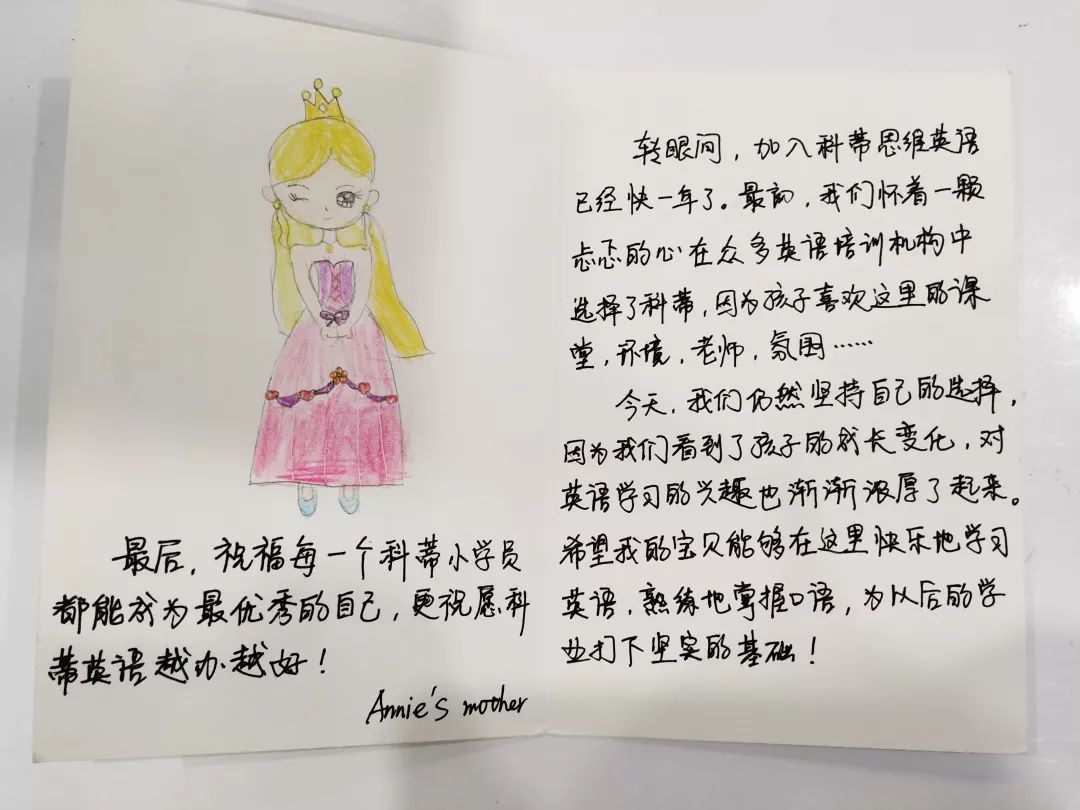 转眼间，加入科蒂思维英语
已经快一年了。最初，我们怀着一颗
忐忑的心在众多英语培训机构中
选择了科蒂，因为孩子喜欢这里的课
堂，环境，老师，氛围……
今天，我们仍然坚持自己的选择，
因为我们看到了孩子的成长变化，对
英语学习的兴趣也渐渐浓厚了起来。
希望我的宝贝能够在这里快乐地学习
英语，熟练地掌握口语，为以后的学
业打下坚实的基础！
最后，祝福每一个科蒂小学员
都能成为最优秀的自己，更祝愿科
蒂英语越办越好！
Annie's mother